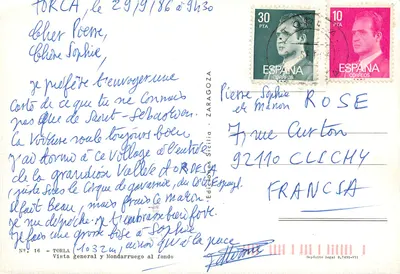 TORLA, le 29/9/86 à 9H30
Cher Pierre,
Chère Sophie,
je préfère t'envoyer une
carte de ce que tu ne connais
pas que de Saint-Sébastien.
La voiture roule toujours bien
j'ai dormi à ce village à l'entrée
de la grandiose Vallée d'ORDESA,
juste sous le Cirque de Gavarnie, du côté Espagnol.
Il fait beau, mais frais ce matin
je me dépêche. Je t'embrasse bien fort.
Je fais une grosse bise à Sophie
1032m, ainsi que à la puce
30 PTA
ESPAÑA
10 PTA
ESPAÑA
CORREOS
Pierre, Sophie
et Manon ROSE
7, rue Curton
92110 CLICHY
FRANCIA
Sicilia - ZARAGOZA
N.º 16 - TORLA
Vista general y Mondarruego al fondo